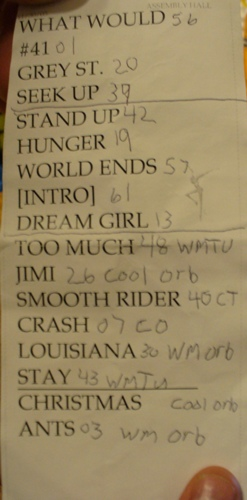 ASSEMBLY HALL
WHAT WOULD 56
#41 01
GREY ST. 20
SEEK UP 39
STAND UP 42
HUNGER 19
WORLD ENDS 57
[INTRO] 61
DREAM GIRL 13
TOO MUCH 48 WMTU
JIMI 26 Cool orb
SMOOTH RIDER 40 CT
CRASH 07 CO
LOUISIANA 30 WM orb
STAY 43 WMTU
CHRISTMAS Cool orb
ANTS 03 WM orb